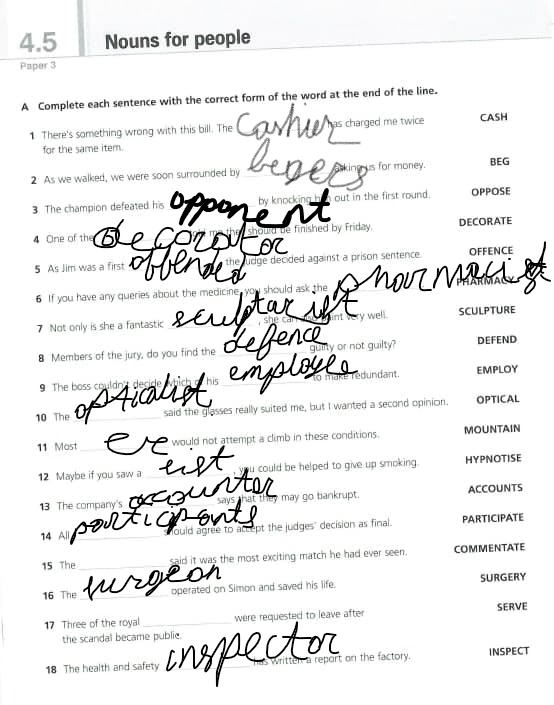 4.5 Nouns for people
Paper 3
A Complete each sentence with the correct form of the word at the end of the line.
1 There's something wrong with this bill. The Cashier has charged me twice CASH
for the same item.
2 As we walked, we were soon surrounded by begers asking us for money. BEG
3 The champion defeated his opponent by knocking him out in the first round. OPPOSE
4 One of the Decorator me they should be finished by Friday. DECORATE
5 As Jim was a first offended the judge decided against a prison sentence. OFFENCE
6 If you have any queries about the medicine, you should ask the pharmacist PHARMACY
7 Not only is she a fantastic sculptarist , she can paint very well. SCULPTURE
8 Members of the jury, do you find the defence guilty or not guilty? DEFEND
9 The boss couldn't decide which of his employee to make redundant. EMPLOY
10 The opticalist said the glasses really suited me, but I wanted a second opinion. OPTICAL
11 Most ere would not attempt a climb in these conditions. MOUNTAIN
12 Maybe if you saw a eist , you could be helped to give up smoking. HYPNOTISE
13 The company's accounter says that they may go bankrupt. ACCOUNTS
14 All participants should agree to accept the judges' decision as final. PARTICIPATE
15 The said it was the most exciting match he had ever seen. COMMENTATE
16 The surgeon operated on Simon and saved his life. SURGERY
17 Three of the royal were requested to leave after SERVE
the scandal became public.
18 The health and safety inspector has written a report on the factory. INSPECT